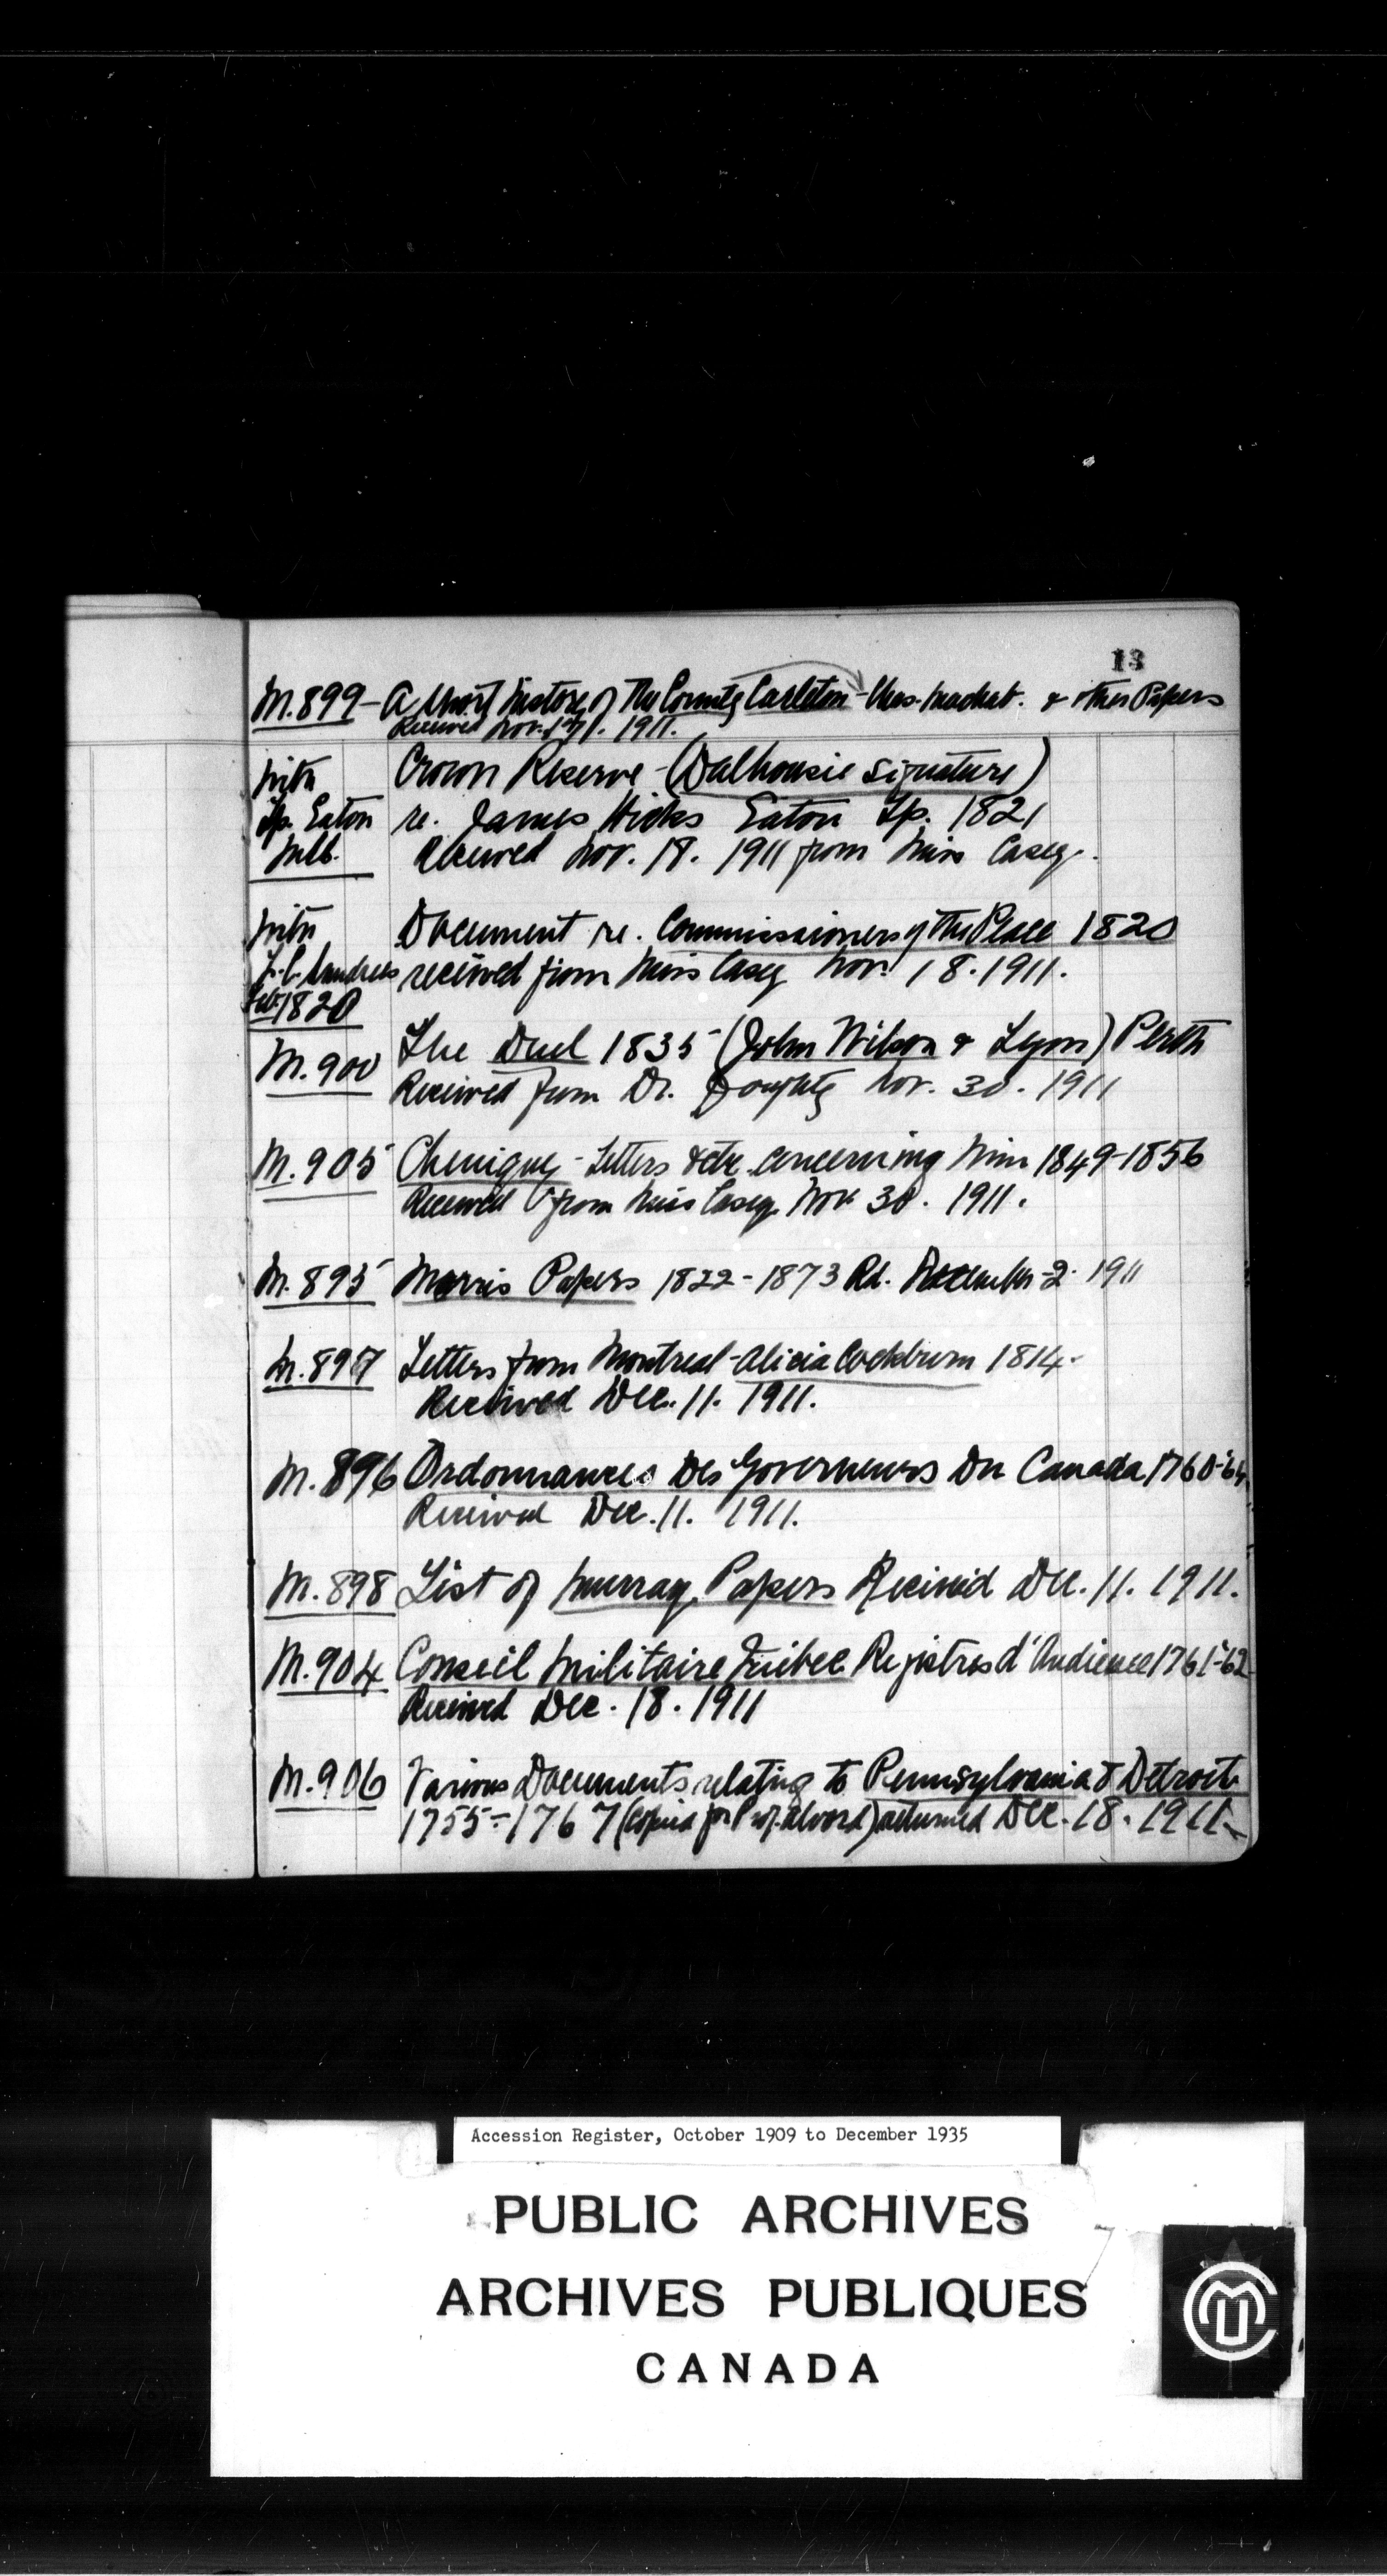 13
M.899 - A Short History of The County Carleton - & other Papers
Received Nov. 17. 1911.
with Crown Reserve - (Dalhousie Signature)
Tp. Eaton re. James Hicks Eaton Tp. 1821
Received Nov. 18. 1911 from Miss Casey.
with Document re. Commissioners of the Peace 1820
received from Miss Casey Nov. 18. 1911.
Feb. 1820
M.900 The Duel 1835 (John Wilson & Lyon) Perth
Received from Dr. Doughty Nov. 30. 1911
M.905 Cheniquy - Letters &etc. concerning him 1849-1856
Received from Miss Casey Nov 30. 1911.
M.895 Morris Papers 1822-1873 Rd. December 2. 1911
M.897 Letters from Montreal - Alicia Cockburn 1814.
Received Dec. 11. 1911.
M.896 Ordonnances Des Governeurs Du Canada 1760-'64
Received Dec. 11. 1911.
M.898 List of Murray Papers Received Dec. 11. 1911.
M.904 Conseil Militaire Quebec Registres d'Audience 1761-'62
Received Dec. 18. 1911
M.906 Various Documents relating to Pennsylvania & Detroit
1755-1767 (copied for Prof. Alvord) returned Dec. 18. 1911.
Accession Register, October 1909 to December 1935
PUBLIC ARCHIVES
ARCHIVES PUBLIQUES
CANADA